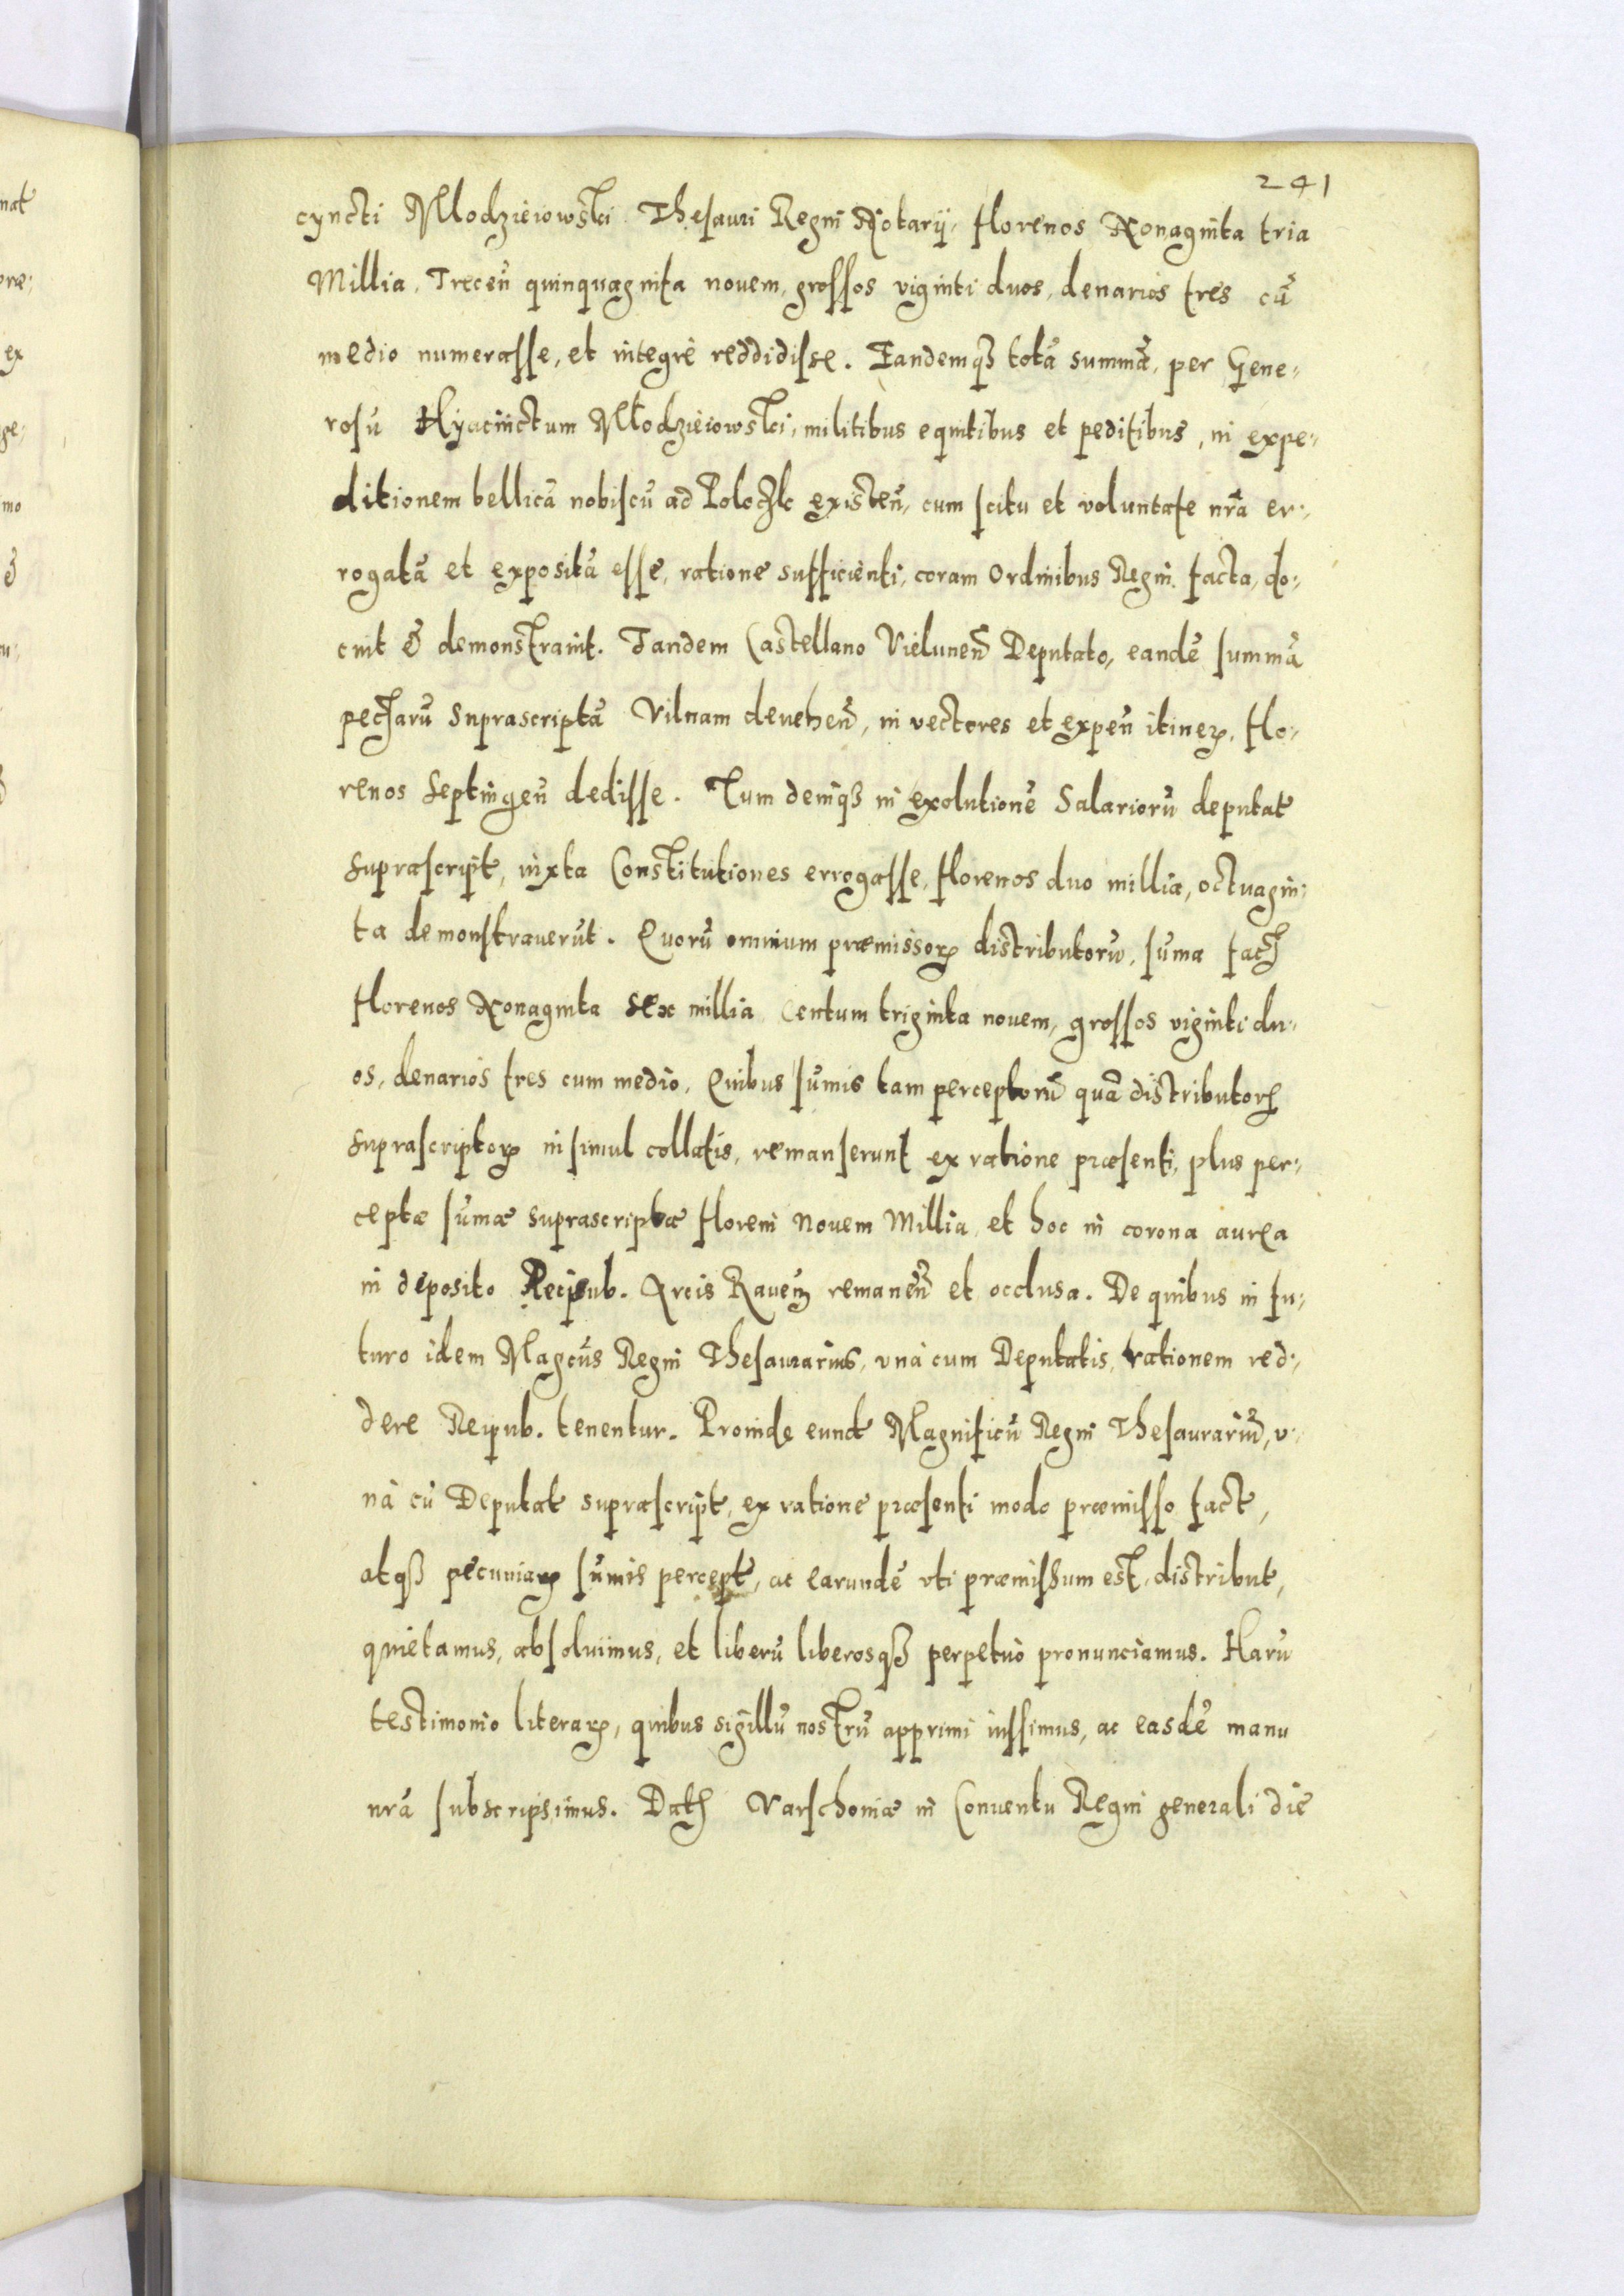 241
cyncti Młodzieiowski Thesauri Regni Notarij, florenos Nonaginta tria
Millia, Trecen̄ quinquaginta novem, grossos viginti duos, denarios tres cū
medio numerasse, et integrè reddidisse. Eandemqȝ totā summā, per Gene:
rosū Hyacinctum Młodzieiowski, militibus equitibus et peditibus, in expe:
ditionem bellicā nobiscū ad Poloczko existen̄, cum scitu et voluntate nr̄a er:
rogatā et expositā esse, ratione sufficienti, coram Ordinibus Regni facta, do:
cuit & demonstrauit. Tandem Castellano Vielunen̄ Deputato, eandē summā
pecꝫarū suprascriptā Vilnam deuehen̄, in vectores et expen̄ itineꝝ, flo:
renos Septingen̄ dedisse. Tum deniqȝ in exolutionē Salariorū deputat
suprascript, iuxta Constitutiones errogasse, florenos duo millia, octuagin:
ta demonstrauerūt. Quorū omnium præmissoꝝ distributorū, sūma facꝫ
florenos Nonaginta sex millia Centum triginta nouem, grossos viginti du:
os, denarios tres cum medio. Quibus sūmis tam perceptorū quā distributoꝝ
suprascriptoꝝ insimul collatis, remanserunt ex ratione præsenti, plus per:
ceptæ sūmæ suprascriptæ floreni Nouem Millia, et hoc in corona aurea
in deposito Reipub. Arcis Rauen̄ remanen̄ et occlusa. De quibus in fu:
turo idem Magcūs Regni Thesaurarius, vnà cum Deputatis, rationem red:
dere Reipub. tenentur. Proinde eund Magnificū Regni Thesaurariū, v:
nà cū Deputat suprascript, ex ratione præsenti modo præmisso fact,
atqȝ pecuniaꝝ sūmis percept, ac earundē vti præmissum est, distribut,
quietamus, absoluimus, et liberū liberosqȝ perpetuò pronunciamus. Harū
testimonio literaꝝ, quibus sigillū nostrū apprimi iussimus, ac easdē manu
nr̄a subscripsimus. Datꝫ Varschoniæ in Conuentu Regni generali die